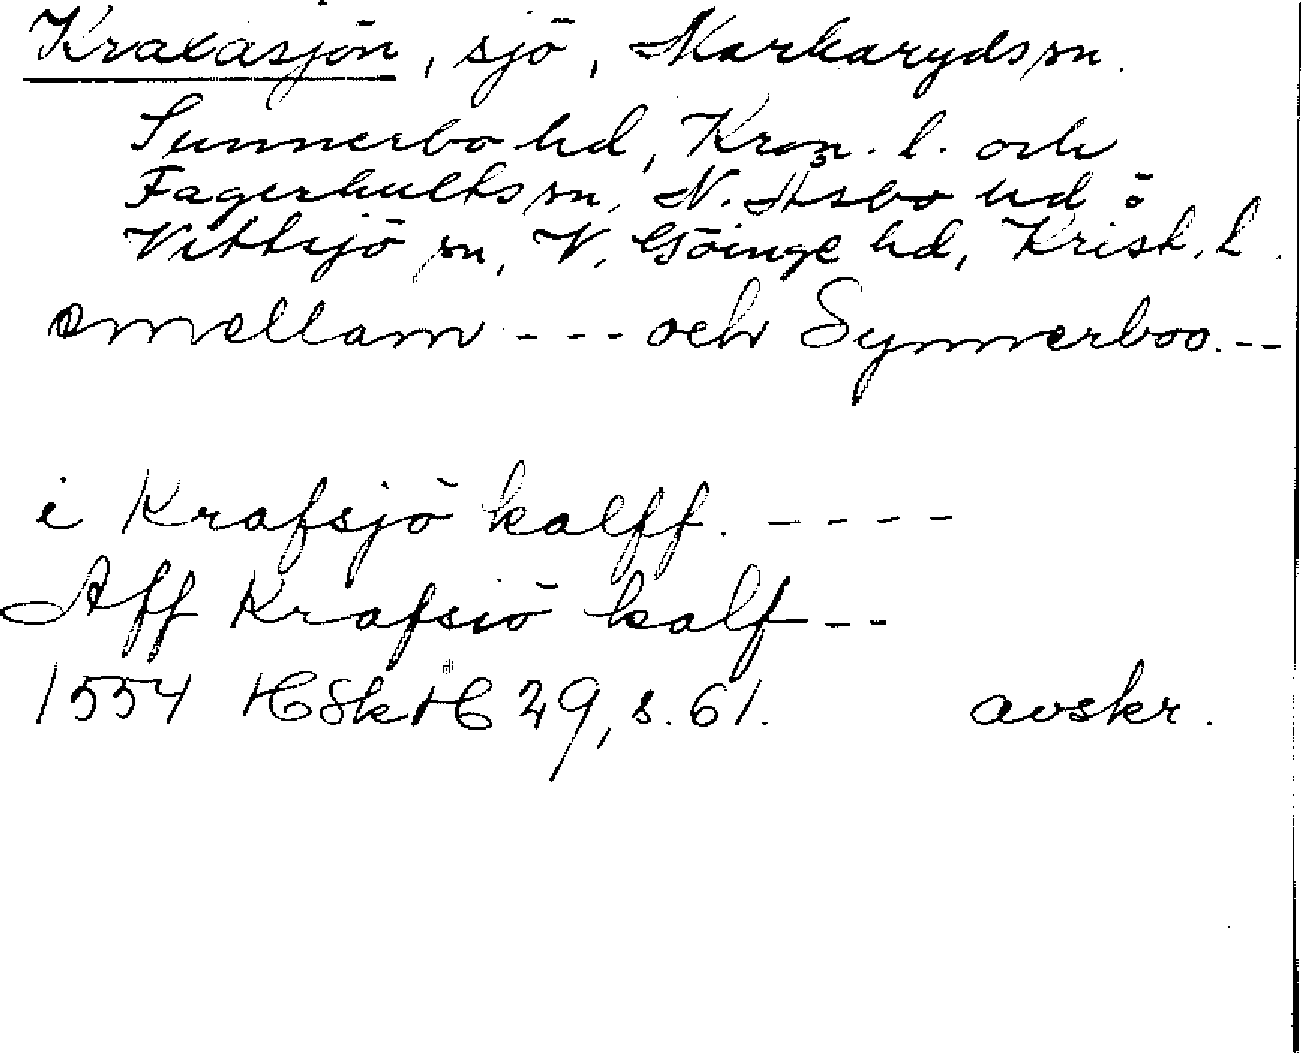 Kraxasjön, sjö, Markaryds sn.
Sunnerbo hd, Kron. l. och
Fagerhults sn, N. Åsbo hd o
Vittsjö sn, V. Göinge hd, Krist. l.
emellam - - - och Synnerboo. --
i Krafsjö kalff. - - - -
Aff Krafsiö kalf --
1554 HSkH 29, s. 61. avskr.